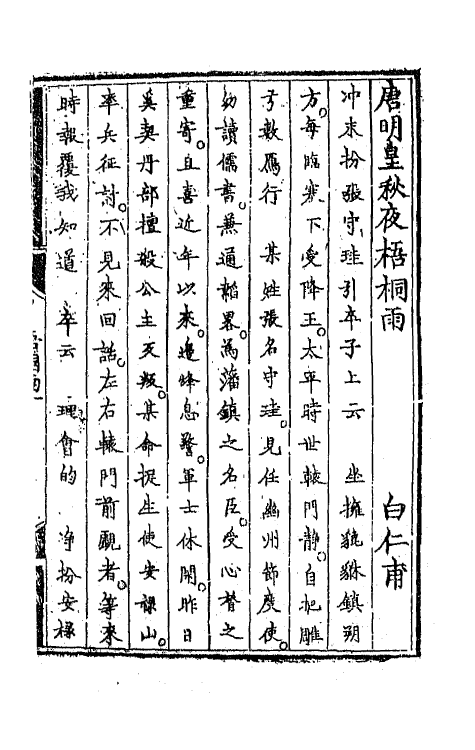 唐明皇秋夜梧桐雨　白仁甫
冲末扮張守珪引卒子上云　坐擁貔貅鎮朔
方。每臨塞下受降王。太平時世轅門靜。自把雕
弓數鴈行　某姓張名守珪。見任幽州節度使。
幼讀儒書。兼通韜畧。為藩鎮之名臣。受心膂之
重寄。且喜近年以來。邊烽息警。軍士休閑。昨日
奚契丹部擅殺公主反叛。某命捉生使安祿山。
率兵征討。不見來回話。左右轅門前覷者。等來
時報覆我知道　卒云　理會的　净扮安祿